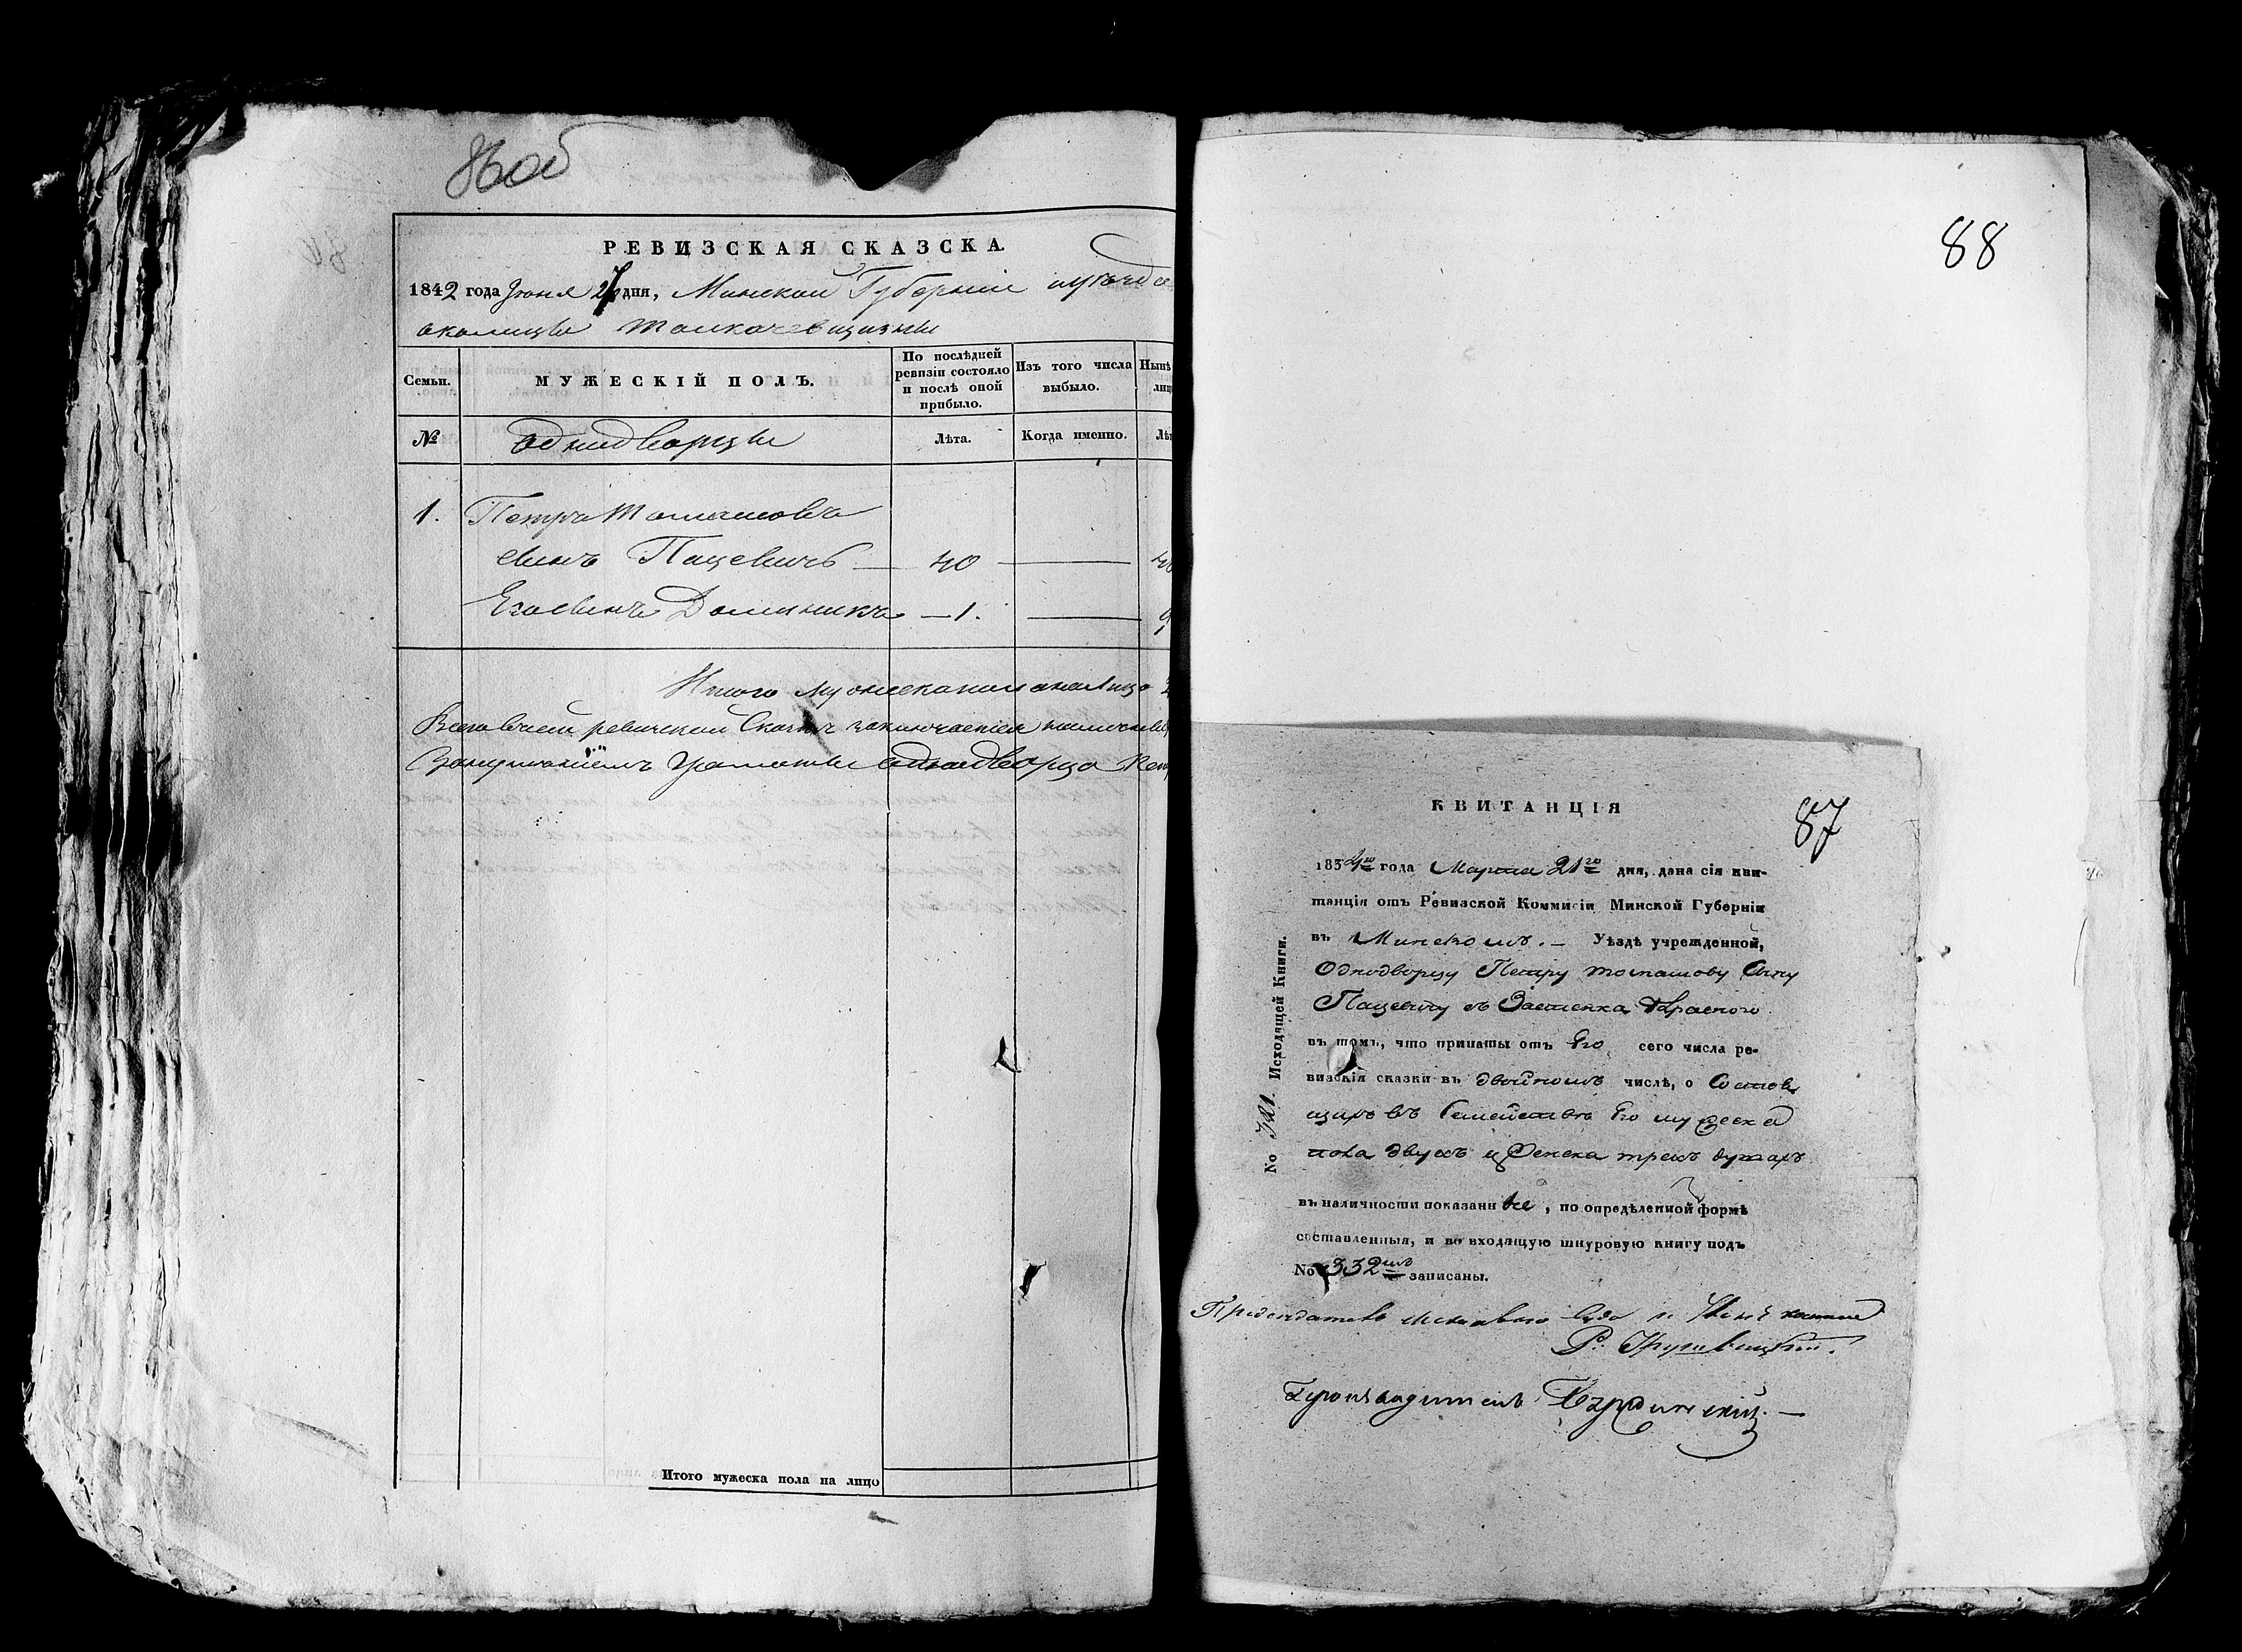 86об
РЕВИЗСКАЯ СКАЗСКА.
1842 года Іюня 27 дня, Минской Губерніи
околицы
Семьи.
МУЖЕСКІЙ ПОЛЪ.
По послѣдней ревизіи состояло и послѣ оной прибыло.
Изъ того числа выбыло.
Нынѣ
лиц
№
однодворцы
Лѣта.
Когда именно.
Лѣ
1. Петръ Томашовъ
сынъ Пацевичъ — 40 — 40
Его сынъ Доминикъ — 1. — 9
Итого мужеска пола на лицо 2
Всего в сей ревизской Сказкѣ заключается
грамоты однодворца
Итого мужеска пола на лицо
88
КВИТАНЦІЯ
87
1834го года Марта 21го дня, дана сія кви-
танція отъ Ревизской Коммисіи Минской Губерніи
въ Минскомъ. — Уѣздѣ учрежденной,
Однодворцу Петру Томашову Сыну
Пацевичу съ Застенка Красного
въ томъ, что приняты отъ Его сего числа ре-
визскія сказки въ двойномъ числѣ, о Состоя
щихъ въ Семействѣ Его мужеска
пола двухъ и женска трехъ душахъ
въ наличности показанныхъ, по опредѣленной формѣ
составленныя, и во входящую шнуровую книгу подъ
No 332мъ записаны.
No Исходящей Книги.
Председатель
Р.
Производитель